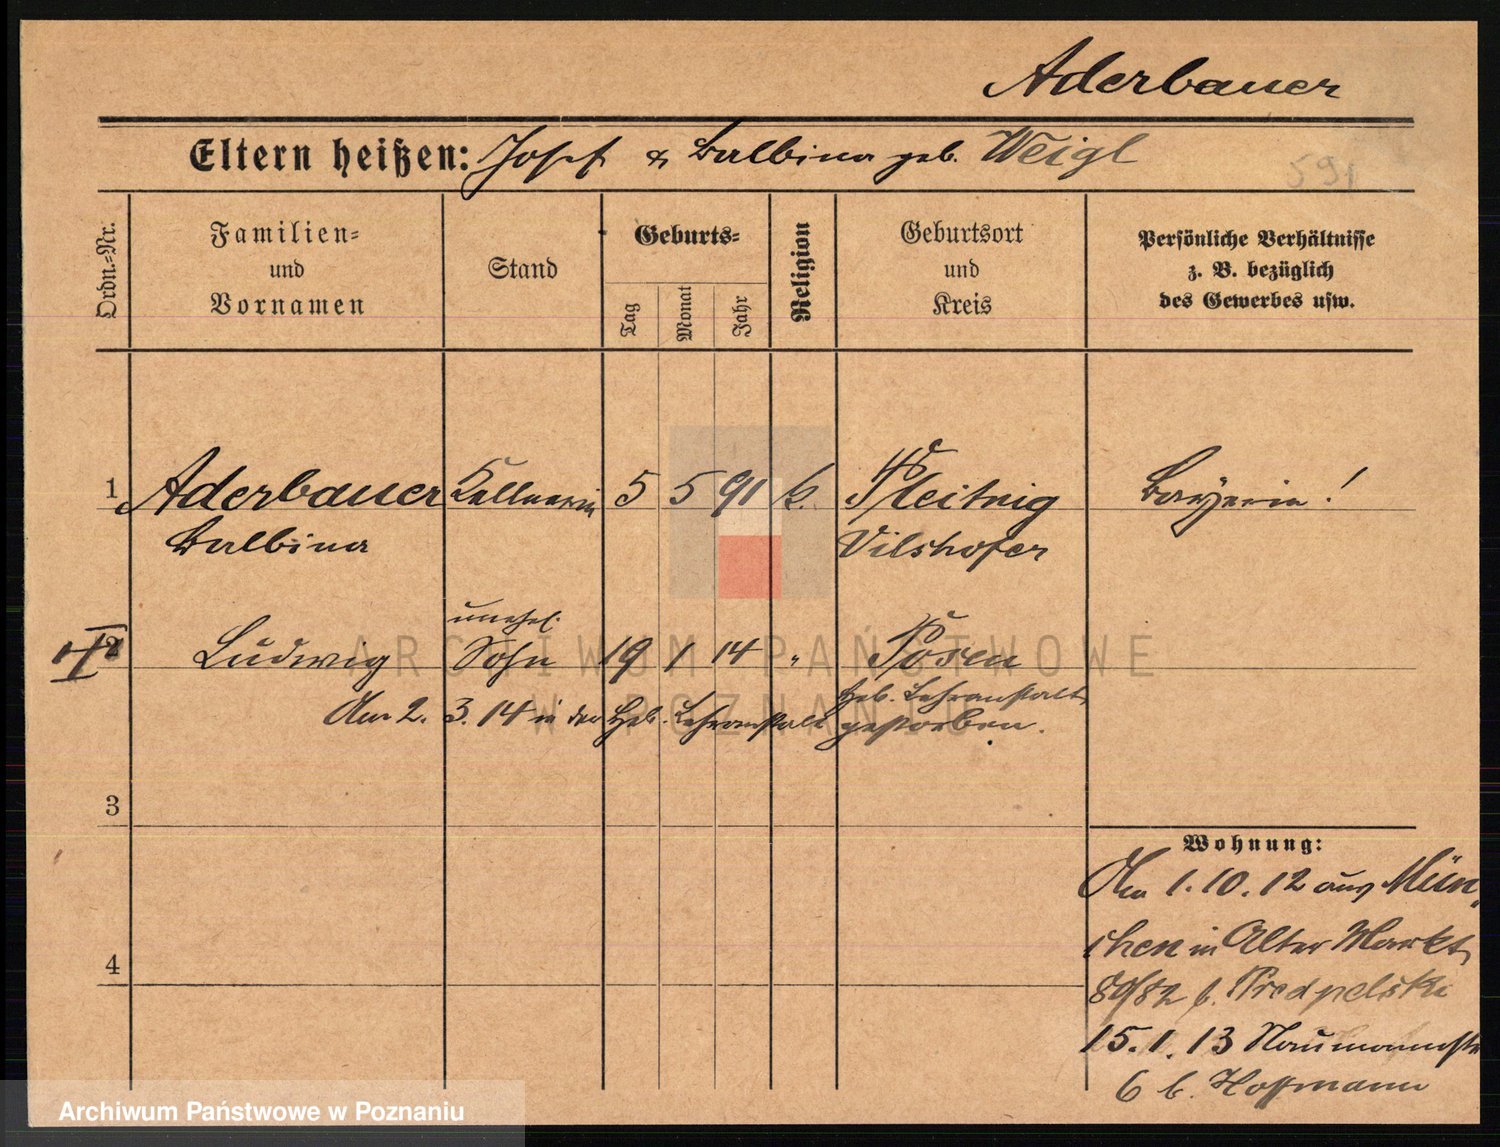 Aderbauer
Eltern heißen: Josef & Balbina geb. Weigl
591
Ordn.=Nr.
Familien=
und
Vornamen
Stand
Geburts=
Tag
Monat
Jahr
Religion
Geburtsort
und
Kreis
Persönliche Verhältnisse
z. B. bezüglich
des Gewerbes usw.
1 Aderbauer Kellnerin 5 5 91 k. Pleitnig Bayerin!
Balbina Vilshofen
unehel.
2 Ludwig Sohn 19 1 14 " Posen
Heb. Lehranstalt
Am 2. 3. 14 in der Heb. Lehranstalt gestorben.
3
4
Wohnung:
Am 1. 10. 12 aus Mün„
chen in Alter Markt
80/82 b. Predpelski
15. 1. 13 Naumannstr
6 b. Hoffmann
ARCHIWUM PAŃSTWOWE
W POZNANIU
Archiwum Państwowe w Poznaniu